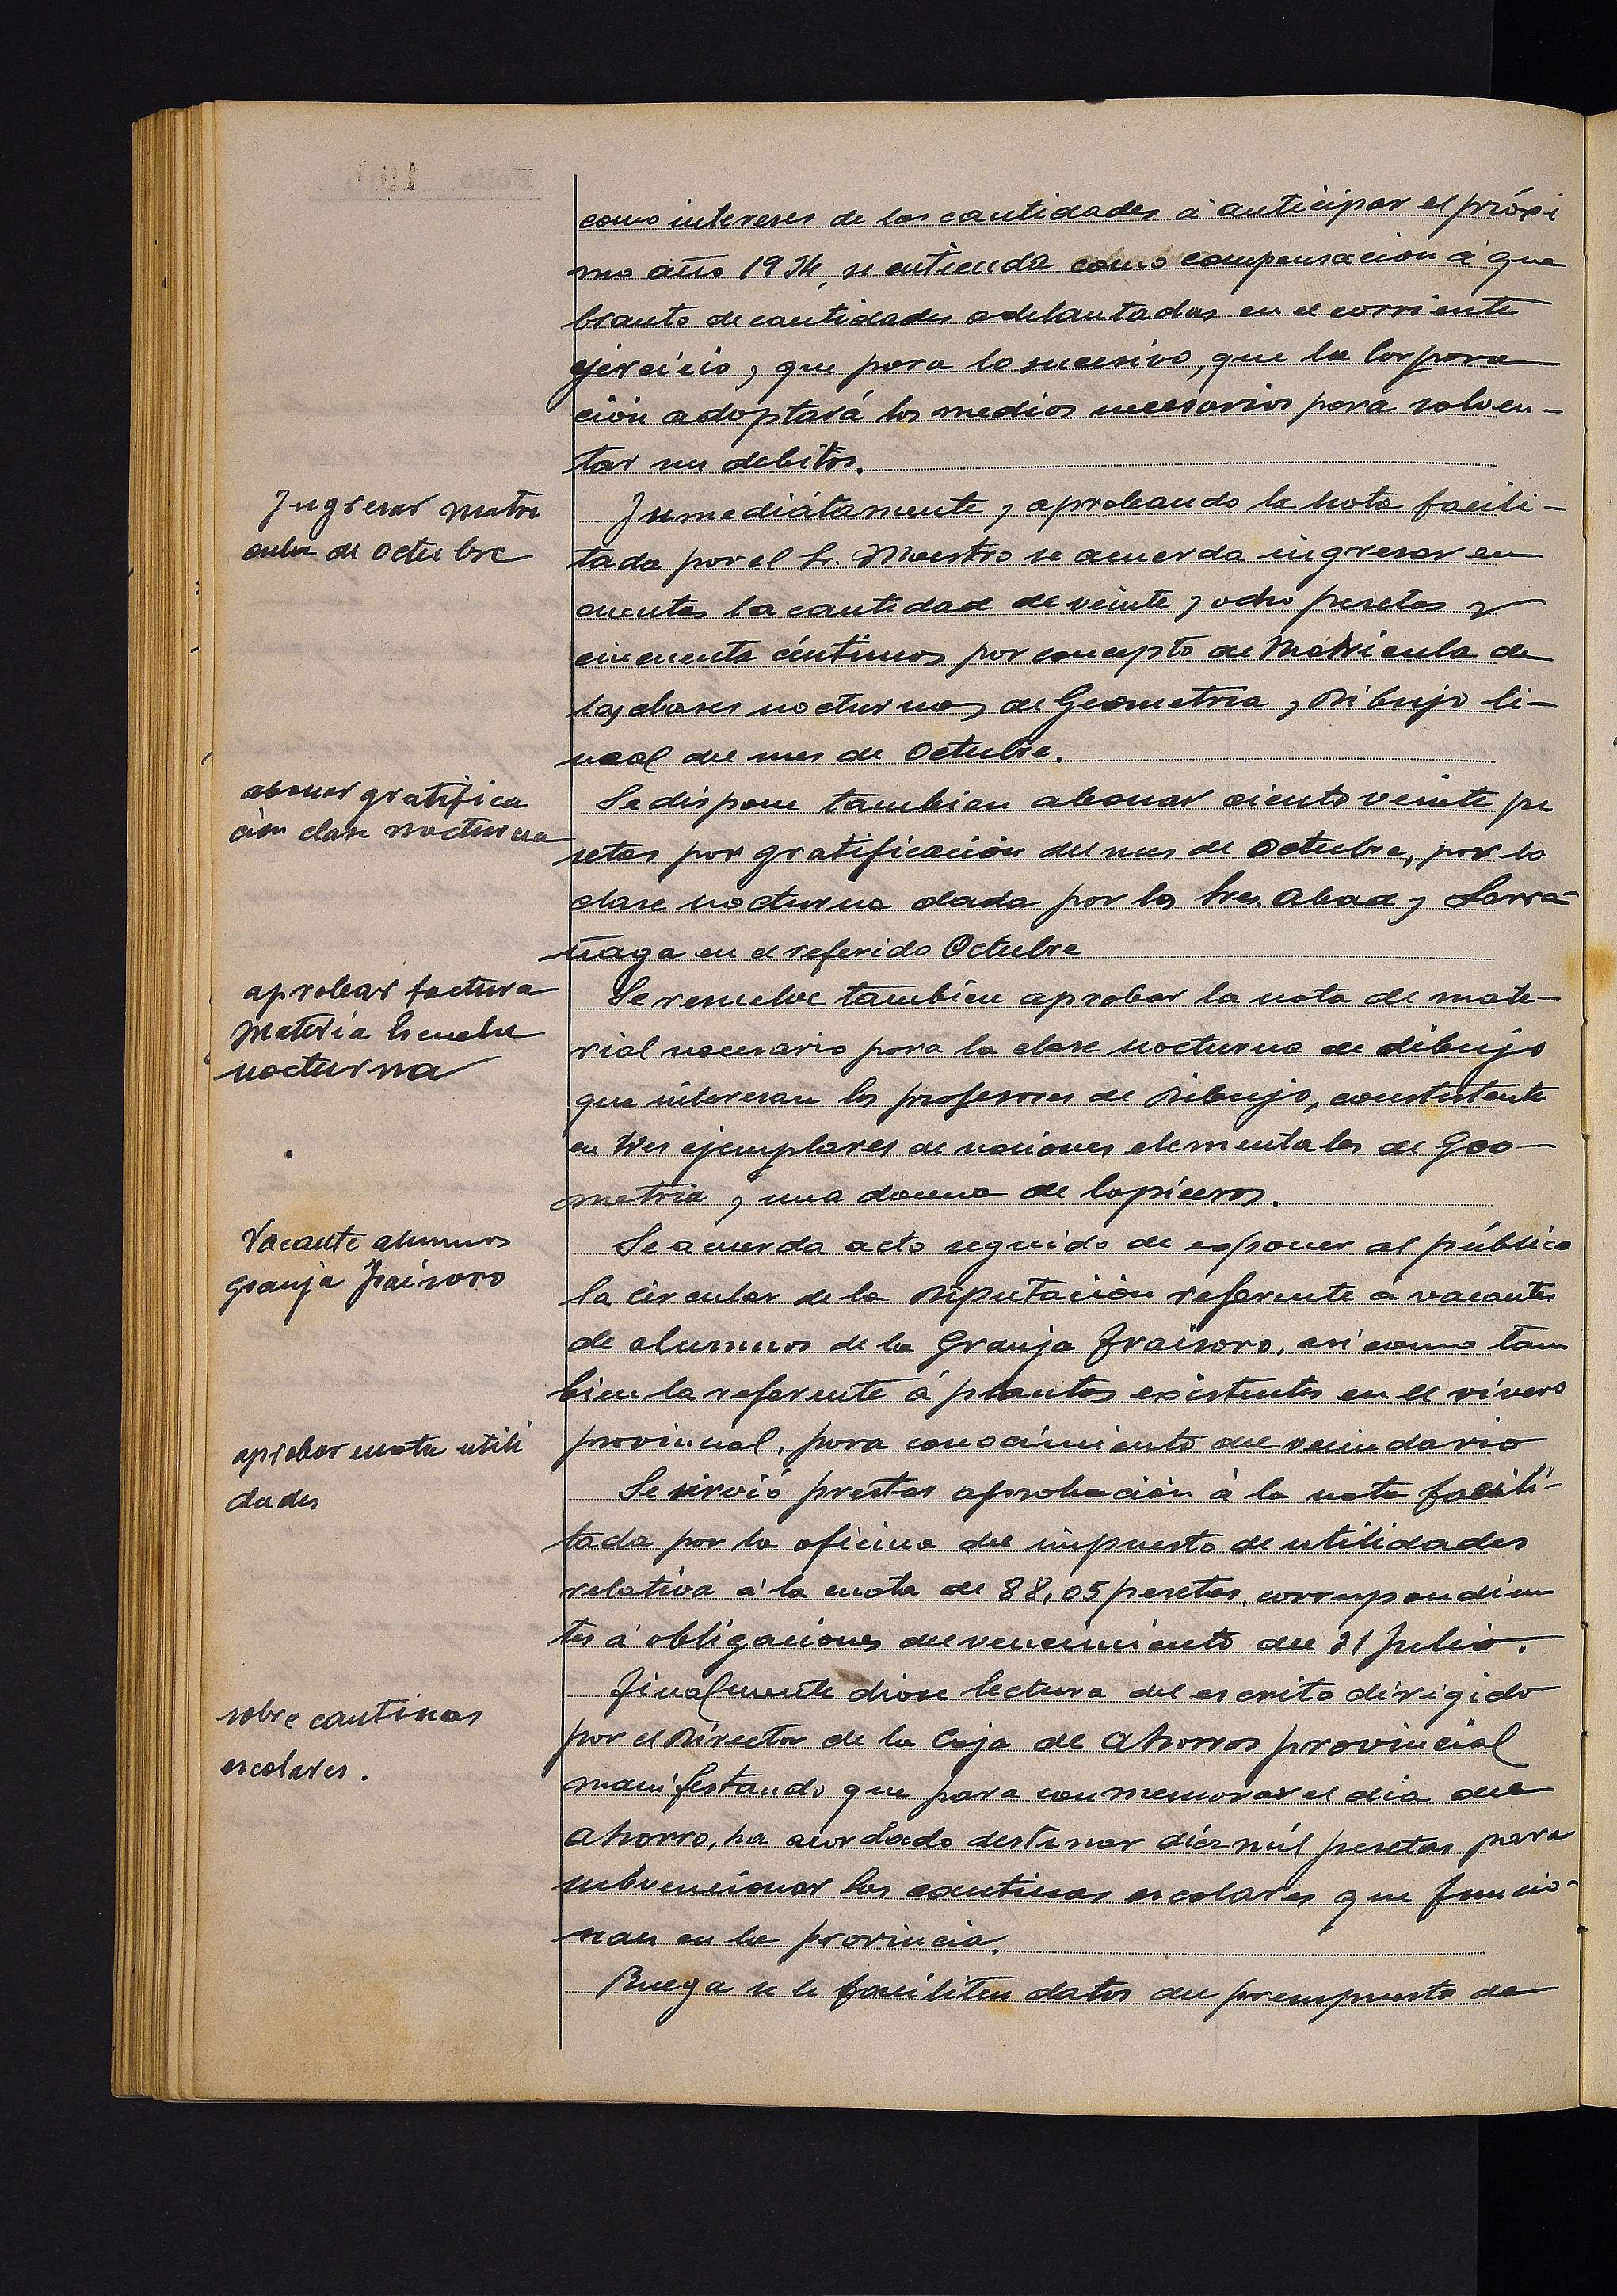 como intereses de las cantidades á anticipar el próxi
mo año 1934, se entienda como compensación á que
branto de cantidades adelantadas en el corriente
ejercicio, que para lo sucesivo, que la Corpora
ción adoptará los medios necesarios para solven-
tar sus debitos.
Ingresar matri
cula de Octubre
Inmediátamente y aprobando la nota facili-
tada por el Sr. Maestro se acuerda ingresar en
cuentas la cantidad de veinte y ocho pesetas y
cincuenta céntimos por concepto de Matricula de
las clases nocturnas de Geometria y Dibujo li-
neal del mes de Octubre.
abonar gratifica
ción clase nocturna
Se dispone tambien abonar ciento veinte pe
setas por gratificación del mes de Octubre, por la
clase nocturna dada por los Sres. Abad y Larra-
ñaga en el referido Octubre
aprobar factura
Materia Escuela
nocturna
Se resuelve tambien aprobar la nota de mate-
rial necesario para la clase nocturna de dibujo
que interesan los profesores de Dibujo, constistente
en tres ejemplares de nociones elementales de Geo-
metria y una docena de lapiceros.
Vacante alumnos
granja Fraisoro
Se acuerda acto seguido de exponer al público
la circular de la Diputación referente á vacantes
de alumnos de la Granja Fraisoro, asi como tam
bien la referente á plantas existentes en el vivero
provincial, para conocimiento del vecindario
aprobar cuota utili
dades
Se sirvió prestar aprobación á la nota facili-
tada por la oficina del impuesto de utilidades
relativa á la cuota de 88,05 pesetas, correspondien
tes á obligaciones del vencimiento del 31 Julio.
sobre cantinas
escolares.
Finalmente diose lectura del escrito dirigido
por el Director de la Caja de Ahorros provincial
manifestando que para conmemorar el dia del
Ahorro, ha acordado destinar diez mil pesetas para
subvencionar las cantinas escolares que funcio-
nan en la provincia.
Ruega se le faciliten datos del presupuesto de